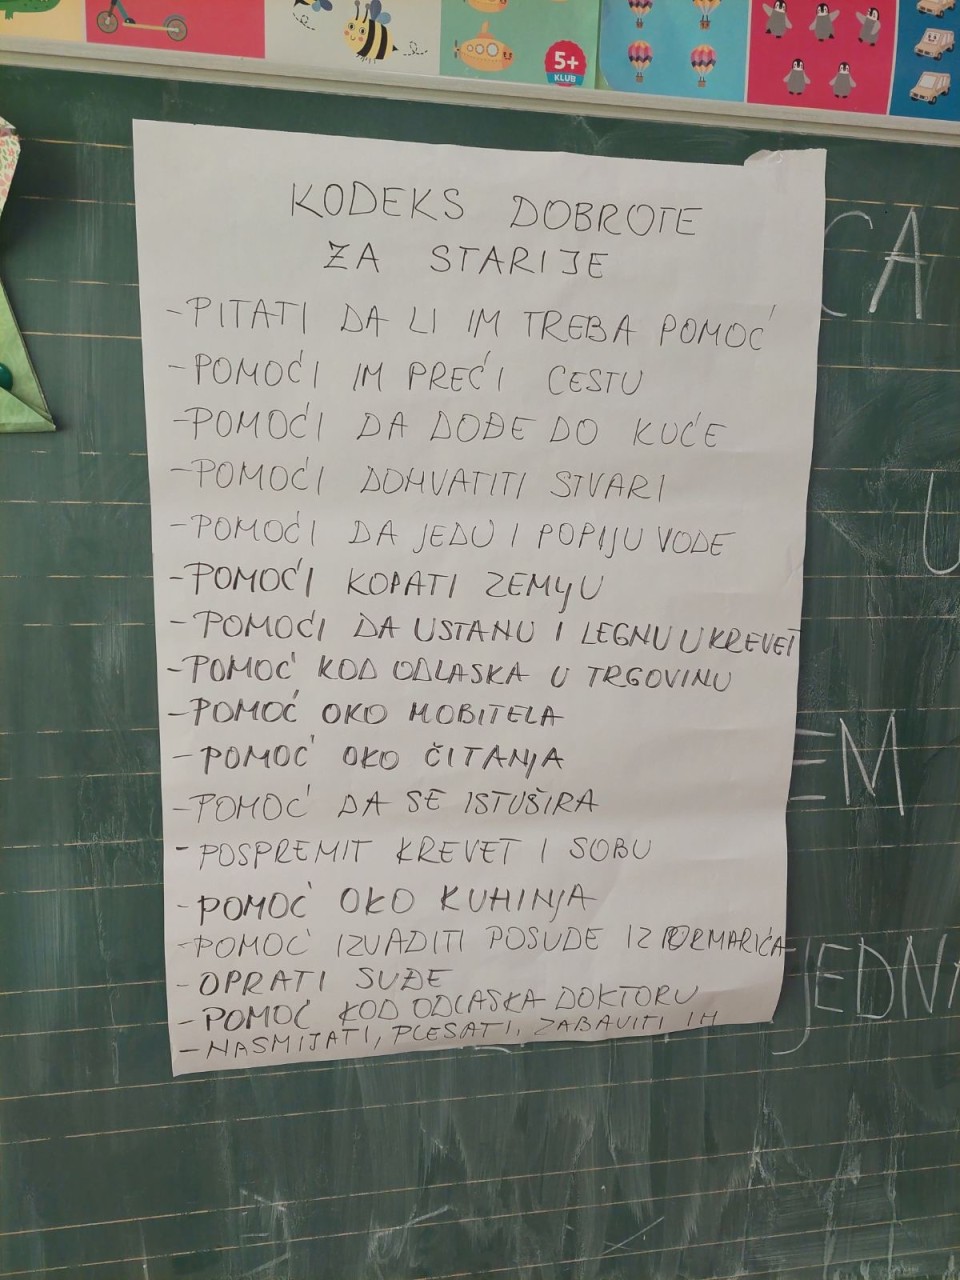 5+
KLUB
KODEKS DOBROTE
ZA STARIJE
-PITATI DA LI IM TREBA POMOĆ
-POMOĆI IM PREĆI CESTU
-POMOĆI DA DOĐE DO KUĆE
-POMOĆI DOHVATITI STVARI
-POMOĆI DA JEDU I POPIJU VODE
-POMOĆI KOPATI ZEMLJU
-POMOĆI DA USTANU I LEGNU U KREVET
-POMOĆ KOD ODLASKA U TRGOVINU
-POMOĆ OKO MOBITELA
-POMOĆ OKO ČITANJA
-POMOĆ DA SE ISTUŠIRA
-POSPREMIT KREVET I SOBU
-POMOĆ OKO KUHINJA
-POMOĆ IZVADITI POSUĐE IZ ORMARIĆA
-OPRATI SUĐE
-POMOĆ KOD ODLASKA DOKTORU
-NASMIJATI, PLESATI, ZABAVITI IH
CA
U
EM
JEDNA